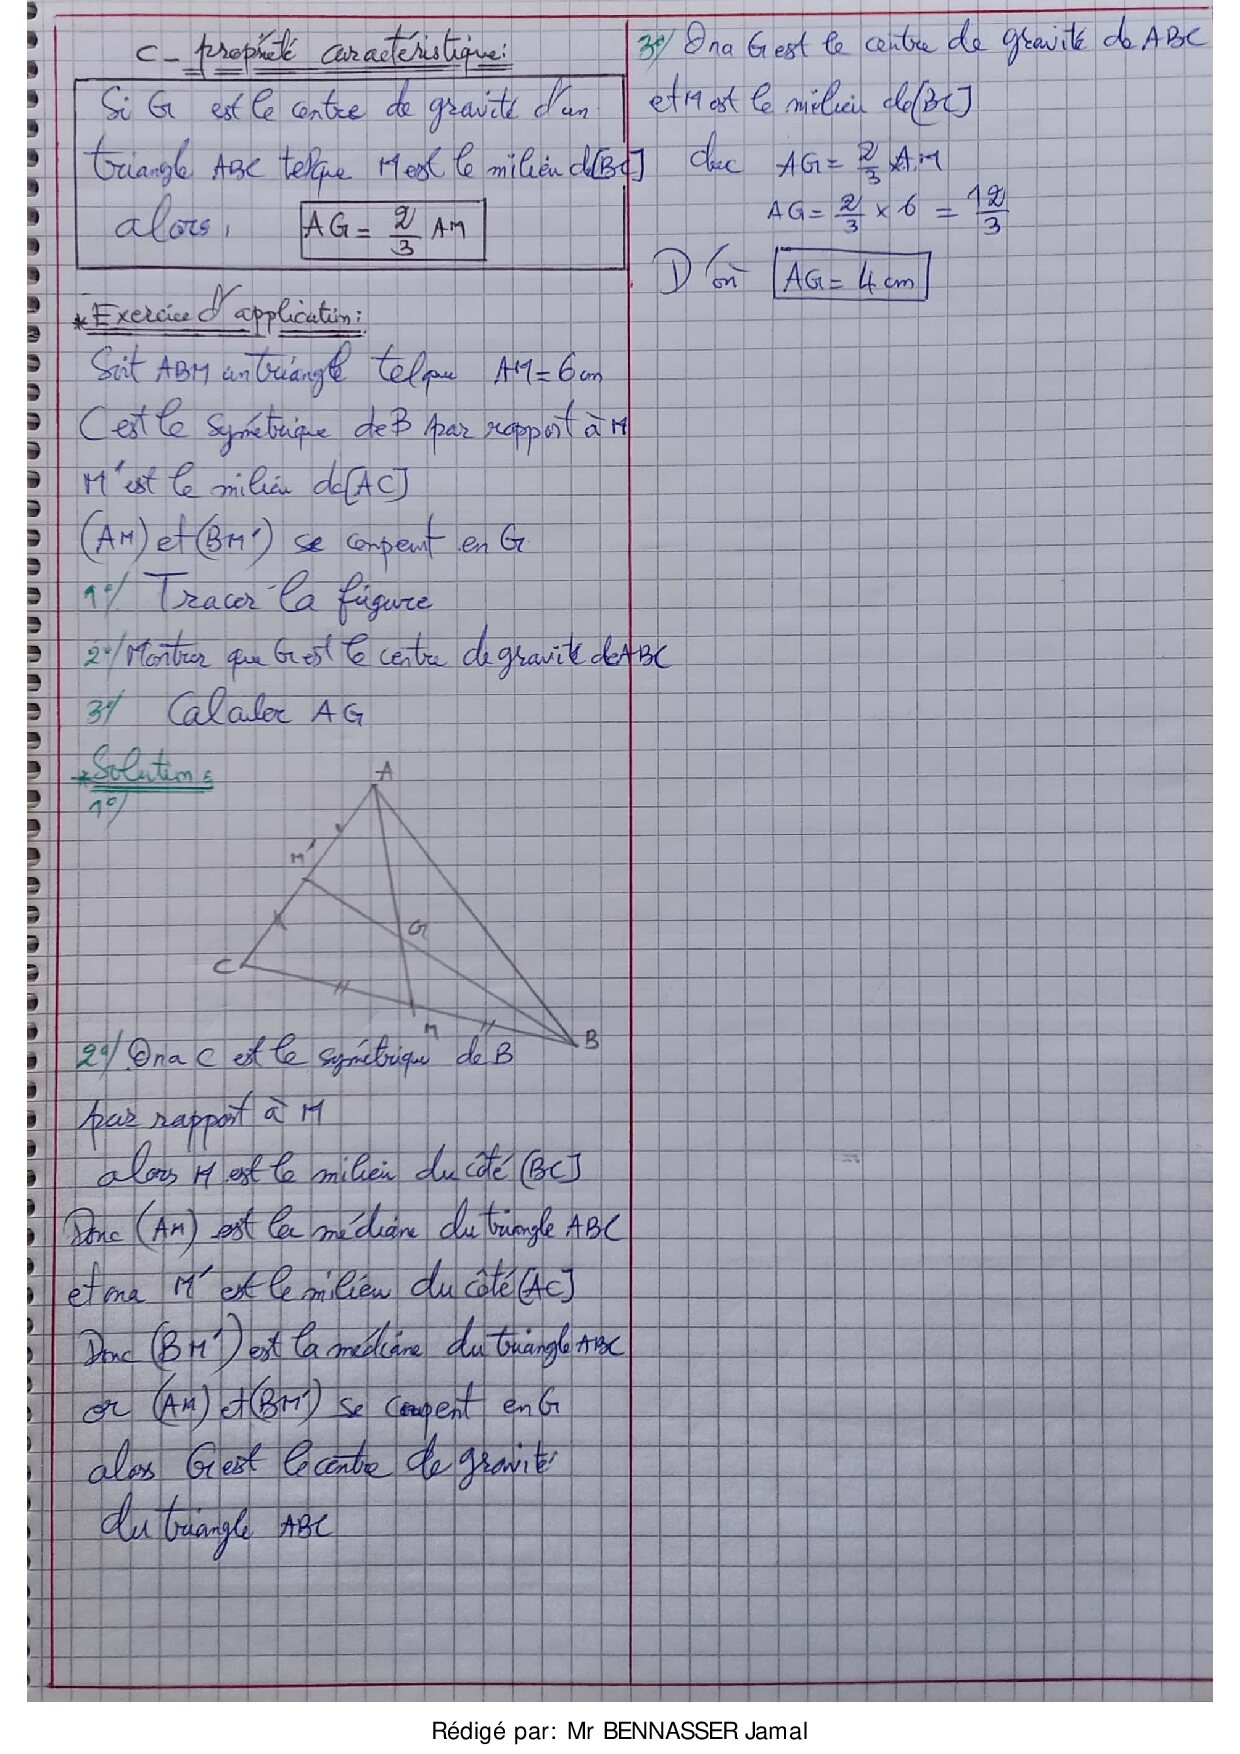 C- propriété caractéristique:
Si G est le centre de gravité d'un
triangle ABC tel que M est le milieu de [BC]
alors, AG = 2/3 AM
* Exercice d'application:
Soit ABM un triangle tel que AM = 6 cm
C est le symétrique de B par rapport à M
M' est le milieu de [AC]
(AM) et (BM') se coupent en G
1°/ Tracer la figure
2°/ Montrer que G est le centre de gravité de ABC
3°/ Calculer AG
* Solution:
1°/
A
M'
G
C
M
B
2°/ On a C est le symétrique de B
par rapport à M
alors M est le milieu du côté [BC]
Donc (AM) est la médiane du triangle ABC
et on a M' est le milieu du côté [AC]
Donc (BM') est la médiane du triangle ABC
or (AM) et (BM') se coupent en G
alors G est le centre de gravité
du triangle ABC
3°/ On a G est le centre de gravité de ABC
et M est le milieu de [BC]
donc AG = 2/3 × AM
AG = 2/3 × 6 = 12/3
D'où AG = 4 cm
Rédigé par: Mr BENNASSER Jamal